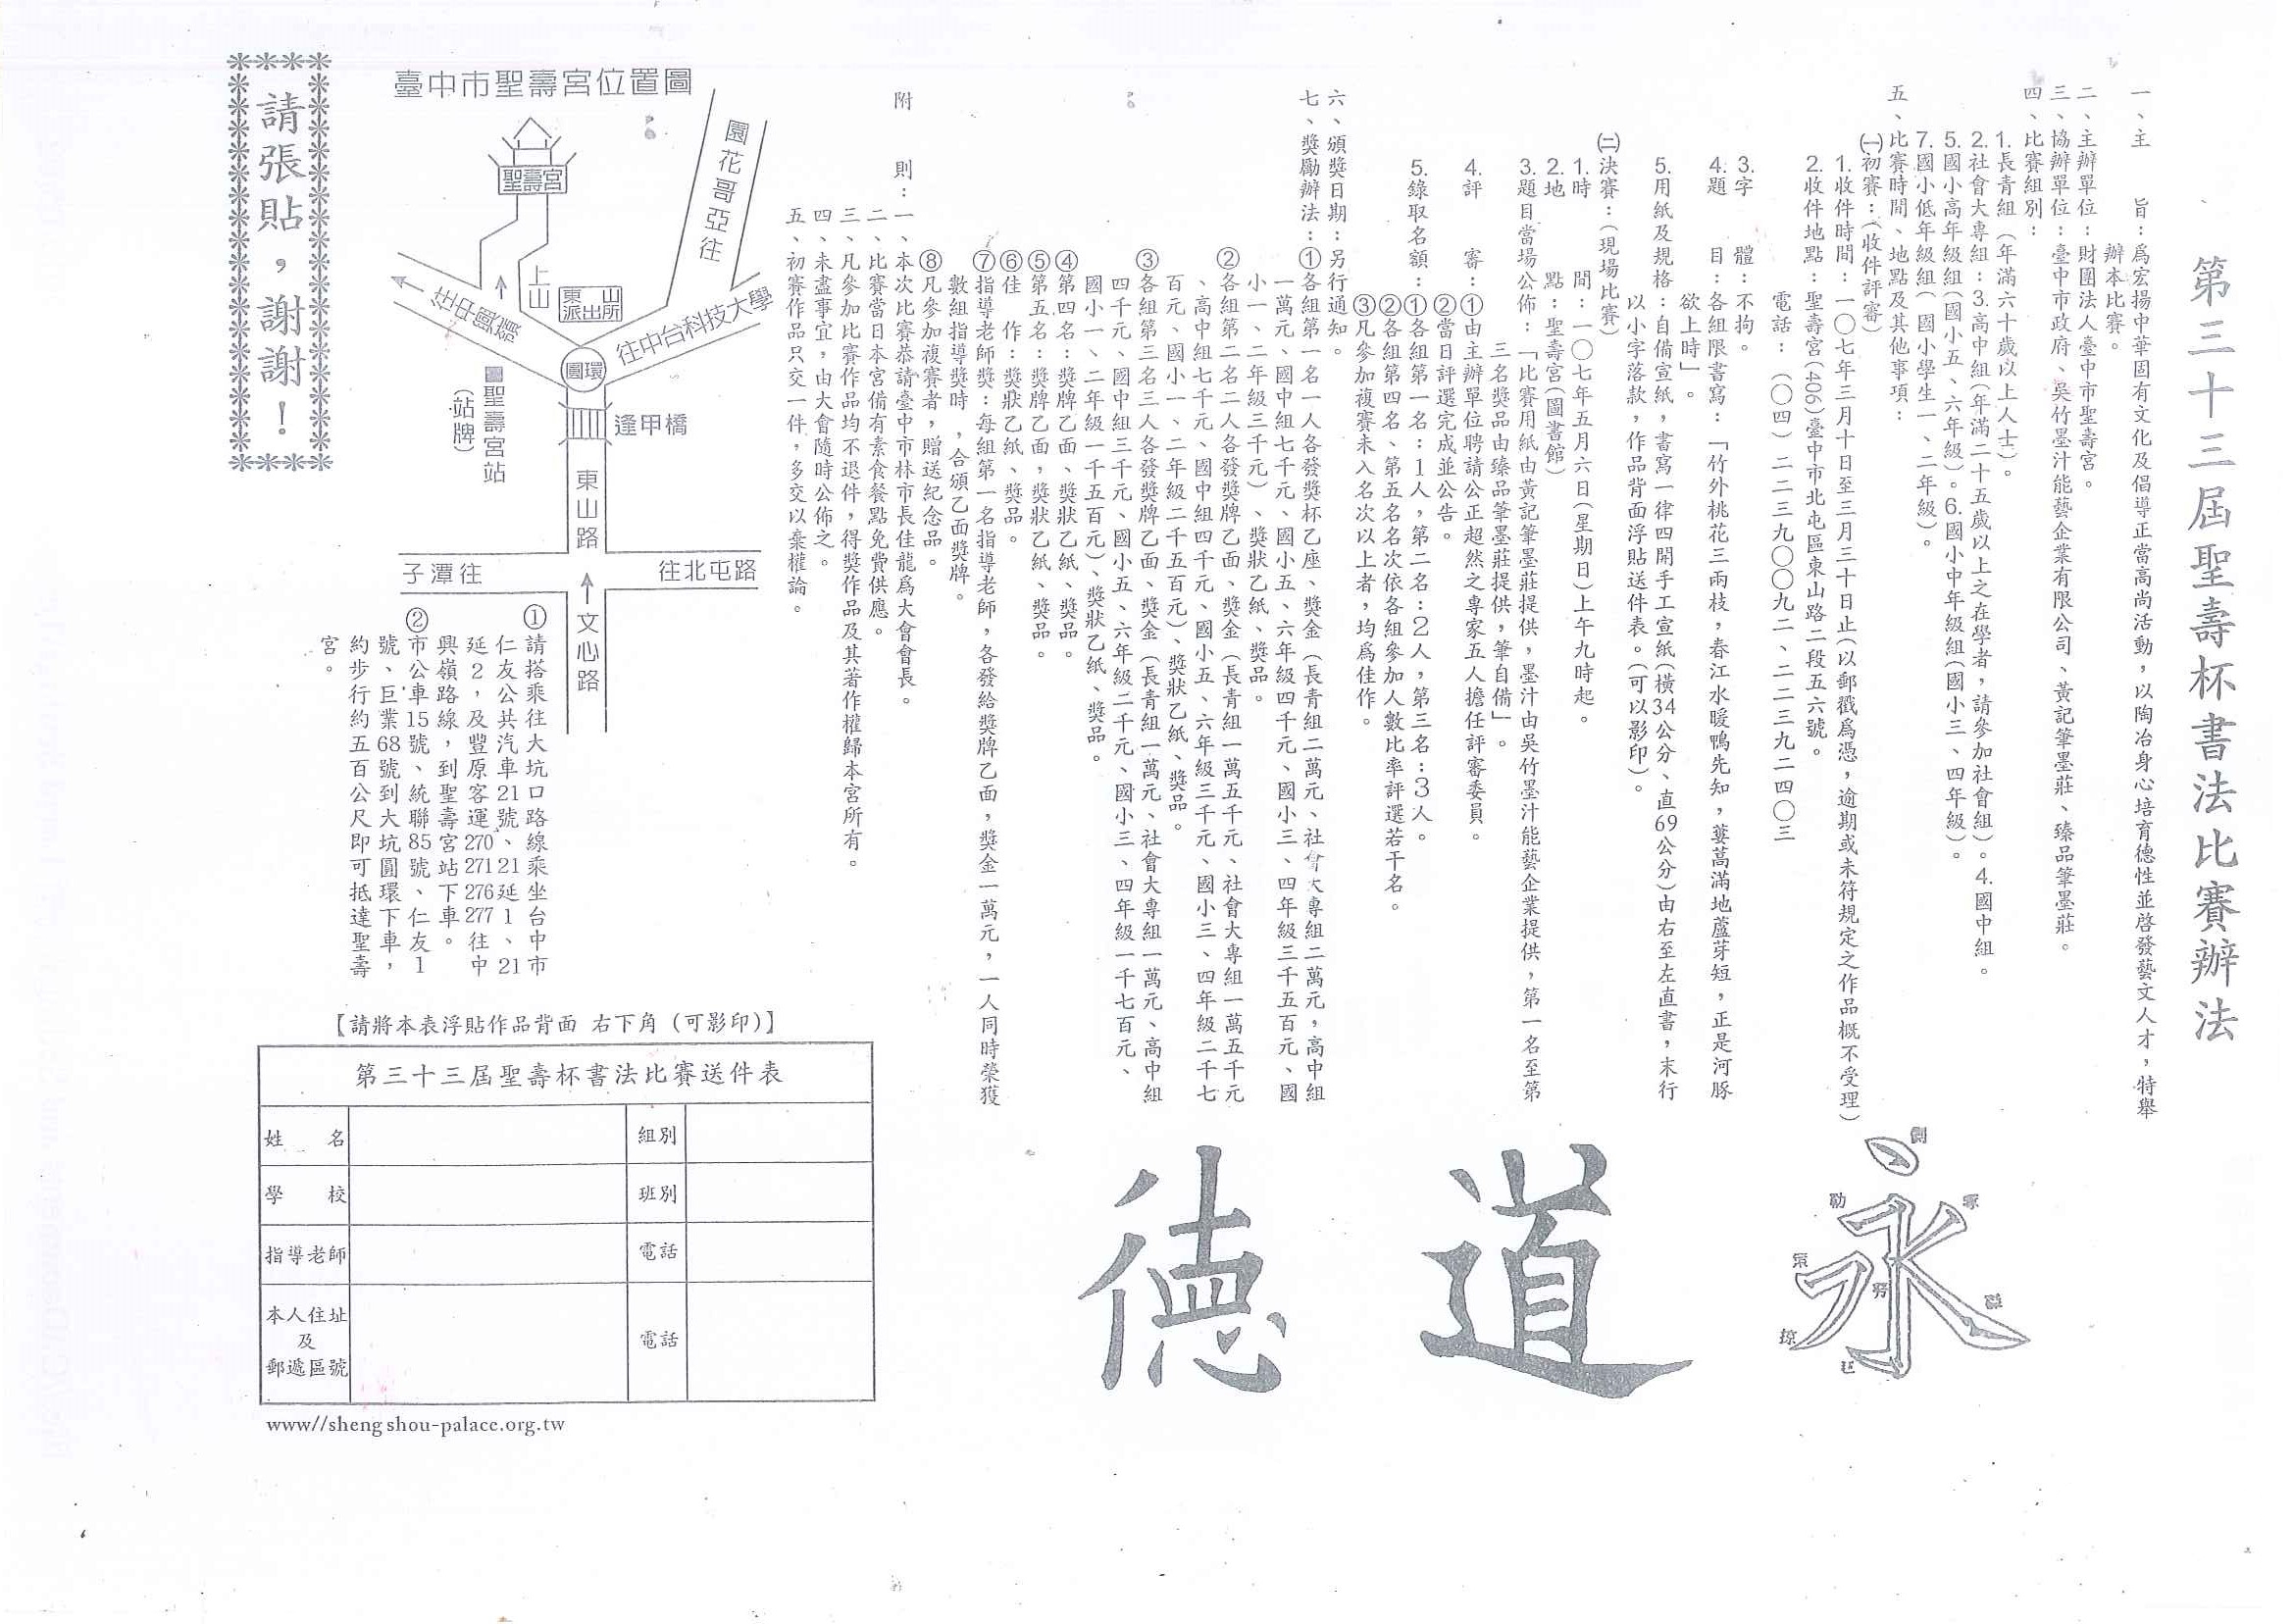 第三十三屆聖壽杯書法比賽辦法
一、主　　旨：為宏揚中華固有文化及倡導正當高尚活動，以陶冶身心培育德性並啓發藝文人才，特舉
辦本比賽。
二、主辦單位：財團法人臺中市聖壽宮。
三、協辦單位：臺中市政府、吳竹墨汁能藝企業有限公司、黃記筆墨莊、臻品筆墨莊。
四、比賽組別：
1.長青組（年滿六十歲以上人士）。
2.社會大專組：3.高中組(年滿二十五歲以上之在學者，請參加社會組)。4.國中組。
5.國小高年級組(國小五、六年級)。6.國小中年級組(國小三、四年級)。
7.國小低年級組(國小學生一、二年級)。
五、比賽時間、地點及其他事項：
㈠初賽：(收件評審)
1.收件時間：一〇七年三月十日至三月三十日止(以郵戳為憑，逾期或未符規定之作品概不受理)
2.收件地點：聖壽宮(406)臺中市北屯區東山路二段五六號。
電話：（〇四）二二三九〇〇九二、二二三九二四〇三
3.字　　體：不拘。
4.題　　目：各組限書寫：「竹外桃花三兩枝，春江水暖鴨先知，蔞蒿滿地蘆芽短，正是河豚
欲上時」。
5.用紙及規格：自備宣紙，書寫一律四開手工宣紙(橫34公分、直69公分)由右至左直書，末行
以小字落款，作品背面浮貼送件表。(可以影印)。
㈡決賽：(現場比賽)
1.時　　間：一〇七年五月六日(星期日)上午九時起。
2.地　　點：聖壽宮(圖書館)
3.題目當場公佈：「比賽用紙由黃記筆墨莊提供，墨汁由吳竹墨汁能藝企業提供，第一名至第
三名獎品由臻品筆墨莊提供，筆自備」。
4.評　　審：①由主辦單位聘請公正超然之專家五人擔任評審委員。
②當日評選完成並公告。
5.錄取名額：①各組第一名：1人，第二名：2人，第三名：3人。
②各組第四名、第五名名次依各組參加人數比率評選若干名。
③凡參加複賽未入名次以上者，均為佳作。
六、頒獎日期：另行通知。
七、獎勵辦法：①各組第一名一人各發獎杯乙座、獎金（長青組二萬元、社會大專組二萬元，高中組
一萬元、國中組七千元、國小五、六年級四千元、國小三、四年級三千五百元、國
小一、二年級三千元）、獎狀乙紙、獎品。
②各組第二名二人各發獎牌乙面、獎金（長青組一萬五千元、社會大專組一萬五千元
、高中組七千元、國中組四千元、國小五、六年級三千元、國小三、四年級二千七
百元、國小一、二年級二千五百元）、獎狀乙紙、獎品。
③各組第三名三人各發獎牌乙面、獎金（長青組一萬元、社會大專組一萬元、高中組
四千元、國中組三千元、國小五、六年級二千元、國小三、四年級一千七百元、
國小一、二年級一千五百元）、獎狀乙紙、獎品。
④第四名：獎牌乙面、獎狀乙紙、獎品。
⑤第五名：獎牌乙面，獎狀乙紙、獎品。
⑥佳　作：獎狀乙紙、獎品。
⑦指導老師獎：每組第一名指導老師，各發給獎牌乙面，獎金一萬元，一人同時榮獲
數組指導獎時，合頒乙面獎牌。
⑧凡參加複賽者，贈送紀念品。
附　　則：一、本次比賽恭請臺中市林市長佳龍為大會會長。
二、比賽當日本宮備有素食餐點免費供應。
三、凡參加比賽作品均不退件，得獎作品及其著作權歸本宮所有。
四、未盡事宜，由大會隨時公佈之。
五、初賽作品只交一件，多交以棄權論。
側
勒
努
掠
永
道
德
臺中市聖壽宮位置圖
聖壽宮
園花哥亞往
上山
東山
派出所
往中台科技大學
往中興嶺
圓環
聖壽宮站
(站牌)
逢甲橋
東山路
子潭往
往北屯路
文心路
①請搭乘往大坑口路線乘坐台中市
仁友公共汽車21號、21延1、21
延2，及豐原客運270 271 276 277往中
興嶺路線，到聖壽宮站下車。
②市公車15號、統聯85號、仁友1
號、巨業68號到大坑圓環下車，
約步行約五百公尺即可抵達聖壽
宮。
請張貼，謝謝！
【請將本表浮貼作品背面 右下角（可影印）】
第三十三屆聖壽杯書法比賽送件表
姓　名　組別
學　校　班別
指導老師　電話
本人住址
及　電話
郵遞區號
www//shengshou-palace.org.tw